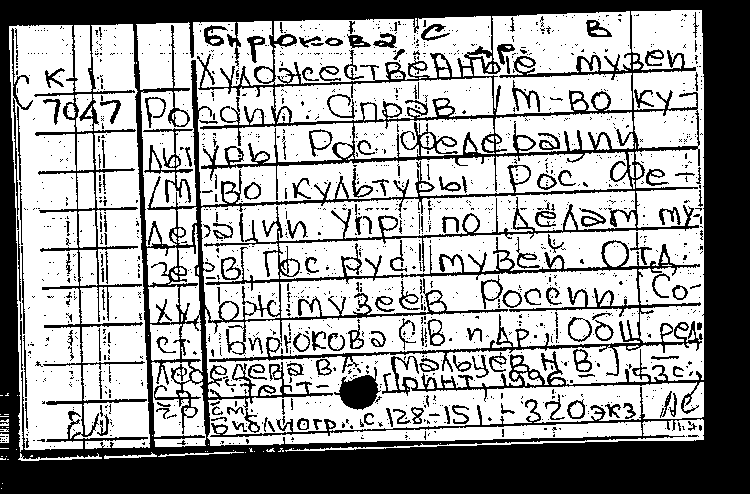 Бирюкова, С В
Художественные музеи
С К-1
7047 России: Справ. /М-во ку-
льтуры Рос. Федерации
/М-во культуры Рос. Фе-
дерации. Упр. по делам му-
зеев, Гос. рус. музей. Отд.
худож. музеев России; Со-
ст. Бирюкова С.В. и др.; Общ. ред.
Лебедева В.А., Мальцев Н.В.] –
СПб.: Тест-Принт, 1996. – 153с.;
20 см.
Библиогр.: с.128-151. – 320экз.